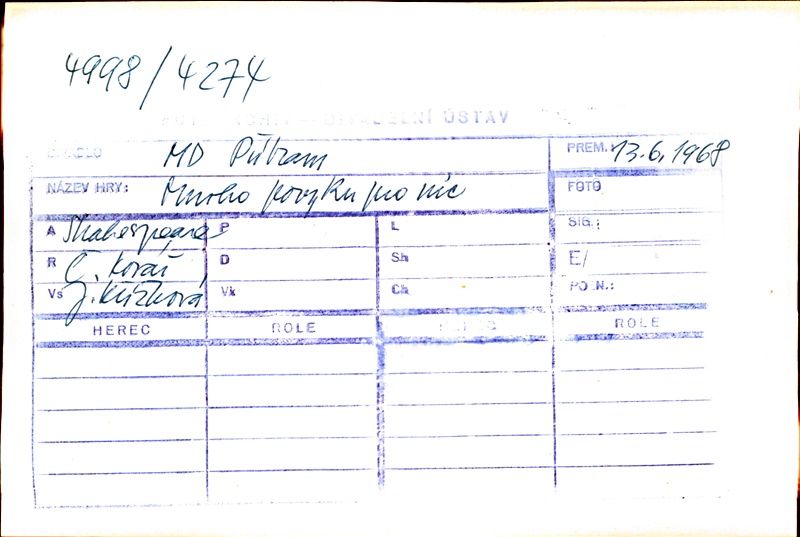 4998/4274
DIVADELNÍ ÚSTAV
DIVADLO MD Příbram PREM.: 13.6.1968
NÁZEV HRY: Mnoho povyku pro nic FOTO
A Shakespeare P L SIG.:
R Č. Kovář D Sh E/
Vs J. Křížková Vk Ch POZN.:
HEREC ROLE HEREC ROLE